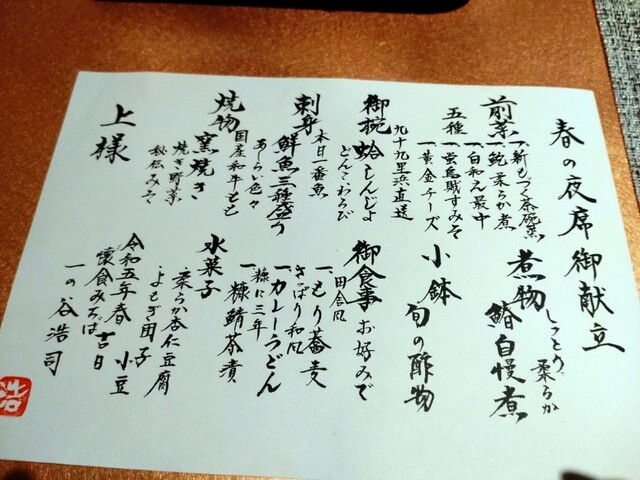 春の夜席御献立
前菜
五種
一、新もづく茶碗蒸
一、鮑柔らか煮
一、白和え最中
一、蛍烏賊すみそ
一、黄金チーズ
御椀
蛤しんじょ
どんこわらび
九十九里浜直送
刺身
本日一番魚
鮮魚三種盛り
あしらい色々
焼物
国産和牛もも
窯焼き
焼き野菜
秘伝みそ
上様
煮物
しっとり、柔らか
鰆自慢煮
小鉢
旬の酢物
御食事 お好みで
田舎風
一、もり蕎麦
さっぱり和風
一、カレーうどん
糠に三年
一、糠鯖茶漬
水菓子
柔らか杏仁豆腐
よもぎ団子 小豆
令和五年春 吉日
懐食みちば
一の谷浩司
浩